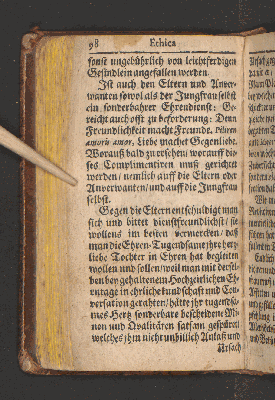 98 Ethica
sonst ungebührlich von leichtfertigen
Gesindlein angefallen werden.
Ist auch den Eltern und Anver-
wanten sowol als der Jungfrau selbst
ein sonderbahrer Ehrendienst: Ge-
reicht auch offt zu beförderung: Denn
Freundlichkeit macht Freunde.
amoris amor, Liebe machet Gegenliebe.
Worauß bald zu ersehen / worauff die-
ses Complimentiren muß gerichtet
werden / nemlich auff die Eltern oder
Anverwanten / und auff die Jungfrau
selbst.
Gegen die Eltern entschuldigt man
sich und bittet dienstfreundlichst / sie
wollens im besten vermercken / daß
man die Ehren-Tugendsame ihre hertz-
liebe Tochter in Ehren hat begleiten
wollen und sollen / weil man mit dersel-
ben bey gehaltenem Hochzeitlichen Eh-
rentage in ehrliche Kundschafft und Con-
versation gerahten / hätte ihr tugendsa-
mes Hertz sonderbare bescheidene Mi-
nen und Qvalitäten satsam gespüret /
welches ihm nicht unbillich Anlaß und
Ursach